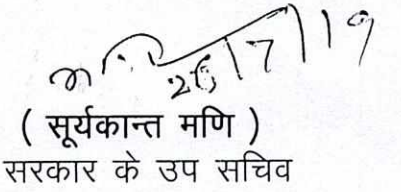 26/7/19
( सूर्यकान्त मणि )
सरकार के उप सचिव